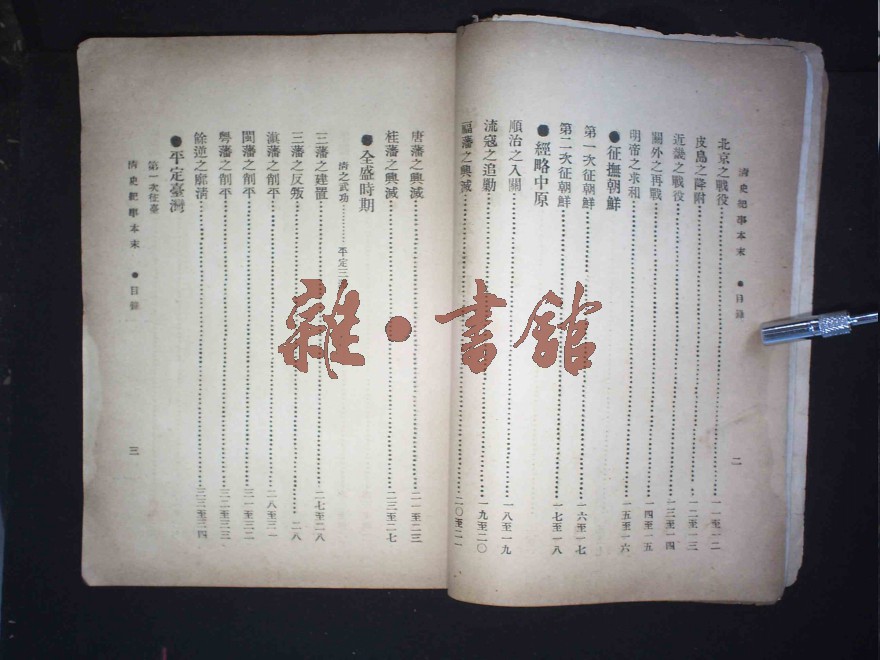 清史紀事本末 ●目錄
二
北京之戰役……一一至一二
皮島之降附……一二至一三
近畿之戰役……一三至一四
關外之再戰……一四至一五
明帝之求和……一五至一六
●征撫朝鮮
第一次征朝鮮……一六至一七
第二次征朝鮮……一七至一八
●經略中原
順治之入關……一八至一九
流寇之追勦……一九至二〇
福藩之興滅……二〇至二一
唐藩之興滅……二一至二三
桂藩之興滅……二三至二七
●全盛時期
清之武功……平定三
三藩之建置……二七至二八
三藩之反叛……二八
滇藩之削平……二八至三一
閩藩之削平……三一至三二
粵藩之削平……三二至三三
餘逆之廓清……三三至三四
●平定臺灣
第一次征臺
清史紀事本末 ●目錄
三
雜·書館